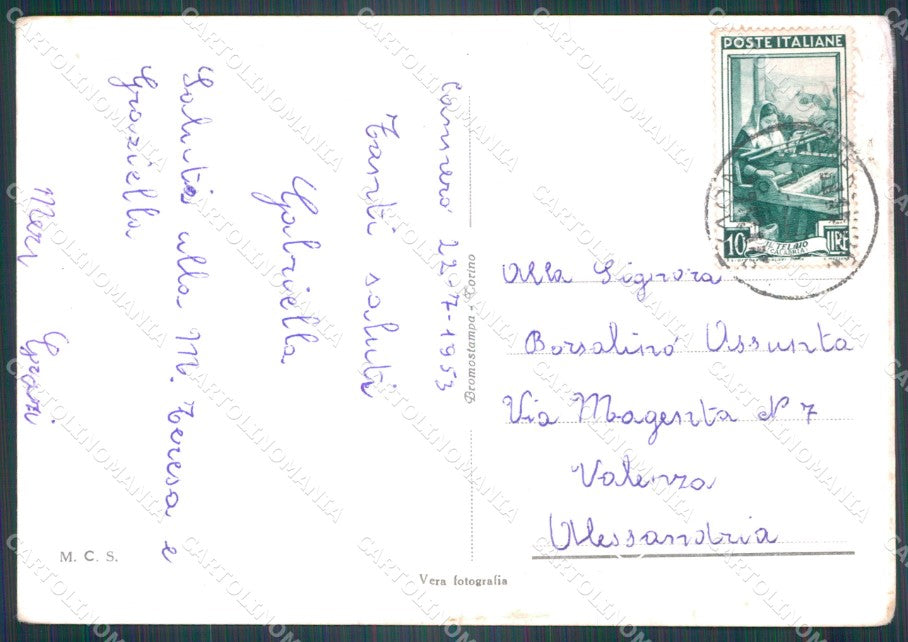 Cannero 22-7-1953
Tanti saluti
Gabriella
Saluti alla M. Teresa e
Graziella
Meri Grazi
M. C. S.
Bromostampa - Torino
Vera fotografia
POSTE ITALIANE
10 IL TELAIO LIRE
CALABRIA
Alla Signora
Borsalino Assunta
Via Magenta N 7
Valenza
Alessandria
CARTOLINOMANIA